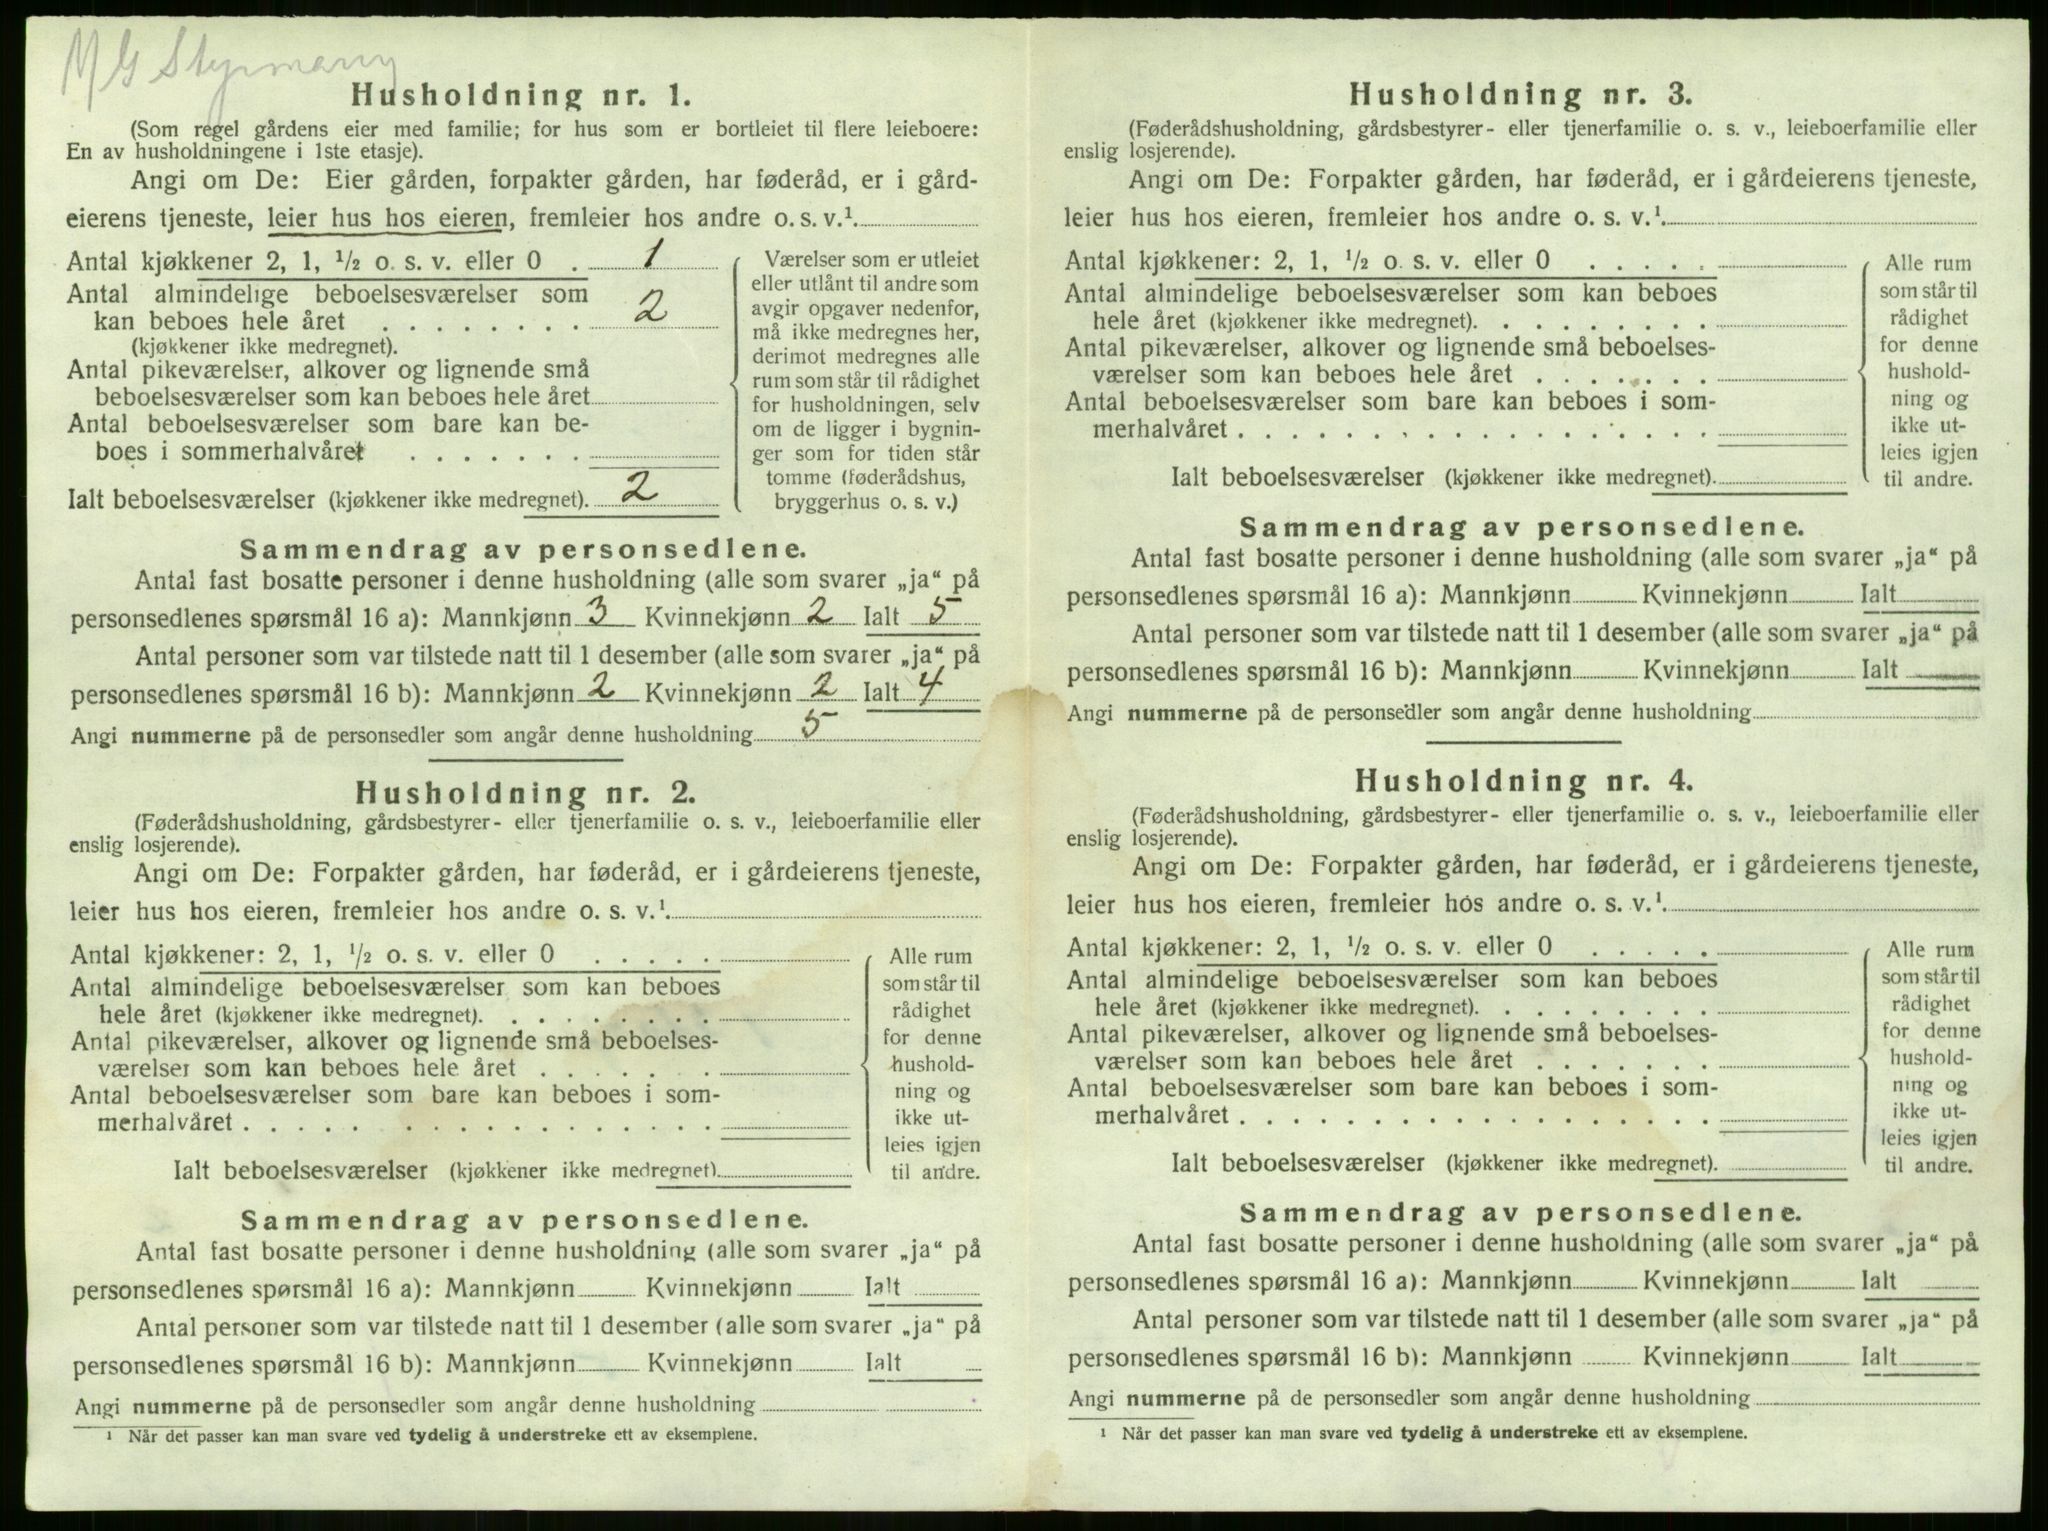 M G Styrmann
Husholdning nr. 1.
(Som regel gårdens eier med familie; for hus som er bortleiet til flere leieboere:
En av husholdningene i 1ste etasje).
Angi om De: Eier gården, forpakter gården, har føderåd, er i gård-
eierens tjeneste, leier hus hos eieren, fremleier hos andre o. s. v.¹
Antal kjøkkener 2, 1, ½ o. s. v. eller 0 . 1
Antal almindelige beboelsesværelser som
kan beboes hele året . . . . . . . . 2
(kjøkkener ikke medregnet).
Antal pikeværelser, alkover og lignende små
beboelsesværelser som kan beboes hele året
Antal beboelsesværelser som bare kan be-
boes i sommerhalvåret . . . . . . .
Ialt beboelsesværelser (kjøkkener ikke medregnet). 2
Værelser som er utleiet
eller utlånt til andre som
avgir opgaver nedenfor,
må ikke medregnes her,
derimot medregnes alle
rum som står til rådighet
for husholdningen, selv
om de ligger i bygnin-
ger som for tiden står
tomme (føderådshus,
bryggerhus o. s. v.)
Sammendrag av personsedlene.
Antal fast bosatte personer i denne husholdning (alle som svarer „ja“ på
personsedlenes spørsmål 16 a): Mannkjønn 3 Kvinnekjønn 2 Ialt 5
Antal personer som var tilstede natt til 1 desember (alle som svarer „ja“ på
personsedlenes spørsmål 16 b): Mannkjønn 2 Kvinnekjønn 2 Ialt 4
Angi nummerne på de personsedler som angår denne husholdning 5
Husholdning nr. 2.
(Føderådshusholdning, gårdsbestyrer- eller tjenerfamilie o. s. v., leieboerfamilie eller
enslig losjerende).
Angi om De: Forpakter gården, har føderåd, er i gårdeierens tjeneste,
leier hus hos eieren, fremleier hos andre o. s. v.¹
Antal kjøkkener: 2, 1, ½ o. s. v. eller 0 . . . . .
Antal almindelige beboelsesværelser som kan beboes
hele året (kjøkkener ikke medregnet). . . . . . . . .
Antal pikeværelser, alkover og lignende små beboelses-
værelser som kan beboes hele året . . . . . . .
Antal beboelsesværelser som bare kan beboes i som-
merhalvåret . . . . . . . . . . . . . . . . . .
Ialt beboelsesværelser (kjøkkener ikke medregnet).
Alle rum
som står til
rådighet
for denne
hushold-
ning og
ikke ut-
leies igjen
til andre.
Sammendrag av personsedlene.
Antal fast bosatte personer i denne husholdning (alle som svarer „ja“ på
personsedlenes spørsmål 16 a): Mannkjønn Kvinnekjønn Ialt
Antal personer som var tilstede natt til 1 desember (alle som svarer „ja“ på
personsedlenes spørsmål 16 b): Mannkjønn Kvinnekjønn Ialt
Angi nummerne på de personsedler som angår denne husholdning
¹ Når det passer kan man svare ved tydelig å understreke ett av eksemplene.
Husholdning nr. 3.
(Føderådshusholdning, gårdsbestyrer- eller tjenerfamilie o. s. v., leieboerfamilie eller
enslig losjerende).
Angi om De: Forpakter gården, har føderåd, er i gårdeierens tjeneste,
leier hus hos eieren, fremleier hos andre o. s. v.¹
Antal kjøkkener: 2, 1, ½ o. s. v. eller 0 . . . . .
Antal almindelige beboelsesværelser som kan beboes
hele året (kjøkkener ikke medregnet). . . . . . . . .
Antal pikeværelser, alkover og lignende små beboelses-
værelser som kan beboes hele året . . . . . . .
Antal beboelsesværelser som bare kan beboes i som-
merhalvåret . . . . . . . . . . . . . . . . . .
Ialt beboelsesværelser (kjøkkener ikke medregnet).
Alle rum
som står til
rådighet
for denne
hushold-
ning og
ikke ut-
leies igjen
til andre.
Sammendrag av personsedlene.
Antal fast bosatte personer i denne husholdning (alle som svarer „ja“ på
personsedlenes spørsmål 16 a): Mannkjønn Kvinnekjønn Ialt
Antal personer som var tilstede natt til 1 desember (alle som svarer „ja“ på
personsedlenes spørsmål 16 b): Mannkjønn Kvinnekjønn Ialt
Angi nummerne på de personsedler som angår denne husholdning
Husholdning nr. 4.
(Føderådshusholdning, gårdsbestyrer- eller tjenerfamilie o. s. v., leieboerfamilie eller
enslig losjerende).
Angi om De: Forpakter gården, har føderåd, er i gårdeierens tjeneste,
leier hus hos eieren, fremleier hos andre o. s. v.¹
Antal kjøkkener: 2, 1, ½ o. s. v. eller 0 . . . . .
Antal almindelige beboelsesværelser som kan beboes
hele året (kjøkkener ikke medregnet). . . . . . . . .
Antal pikeværelser, alkover og lignende små beboelses-
værelser som kan beboes hele året . . . . . . .
Antal beboelsesværelser som bare kan beboes i som-
merhalvåret . . . . . . . . . . . . . . . . . .
Ialt beboelsesværelser (kjøkkener ikke medregnet).
Alle rum
som står til
rådighet
for denne
hushold-
ning og
ikke ut-
leies igjen
til andre.
Sammendrag av personsedlene.
Antal fast bosatte personer i denne husholdning (alle som svarer „ja“ på
personsedlenes spørsmål 16 a): Mannkjønn Kvinnekjønn Ialt
Antal personer som var tilstede natt til 1 desember (alle som svarer „ja“ på
personsedlenes spørsmål 16 b): Mannkjønn Kvinnekjønn Ialt
Angi nummerne på de personsedler som angår denne husholdning
¹ Når det passer kan man svare ved tydelig å understreke ett av eksemplene.